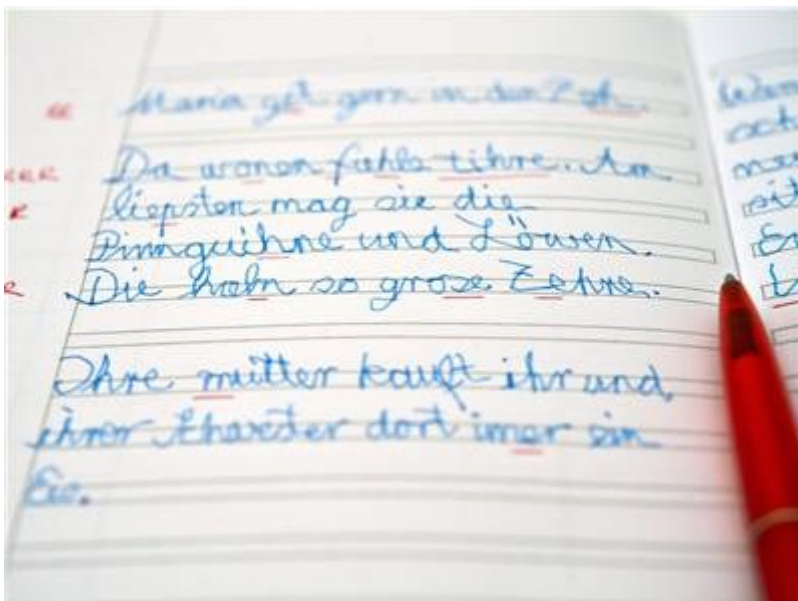 Maria get gern in den Zoh.
Da wonen fiehle tihre. Am
liepsten mag sie die
Pinnguihne und Löwen.
Die habn so grose Zehne.
Ihre mutter kauft ihr und
ihrer dort imer ein
Eis.